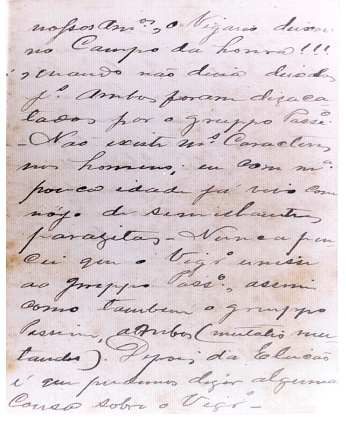 nossos Am.os, o Vigario deixou
no Campo da honra!!!
, quando não devia deixal os
p.r ambos foram disaca
tados por o gruppo Pass.o
- Não existe m.s Caracteres
nos homens; eu com m.a
pouca idade já vivo com
nôjo de semilhantes
parazitas - Nunca pen
cei que o Vigr.o unisse
ao gruppo Pass.o, assim
como tambem o gruppo
Passim, ambos (mutatis mu
tandes). Depois da Eleicão
é que pudemos dizer alguma
Cousa sobre o Vigr.o -